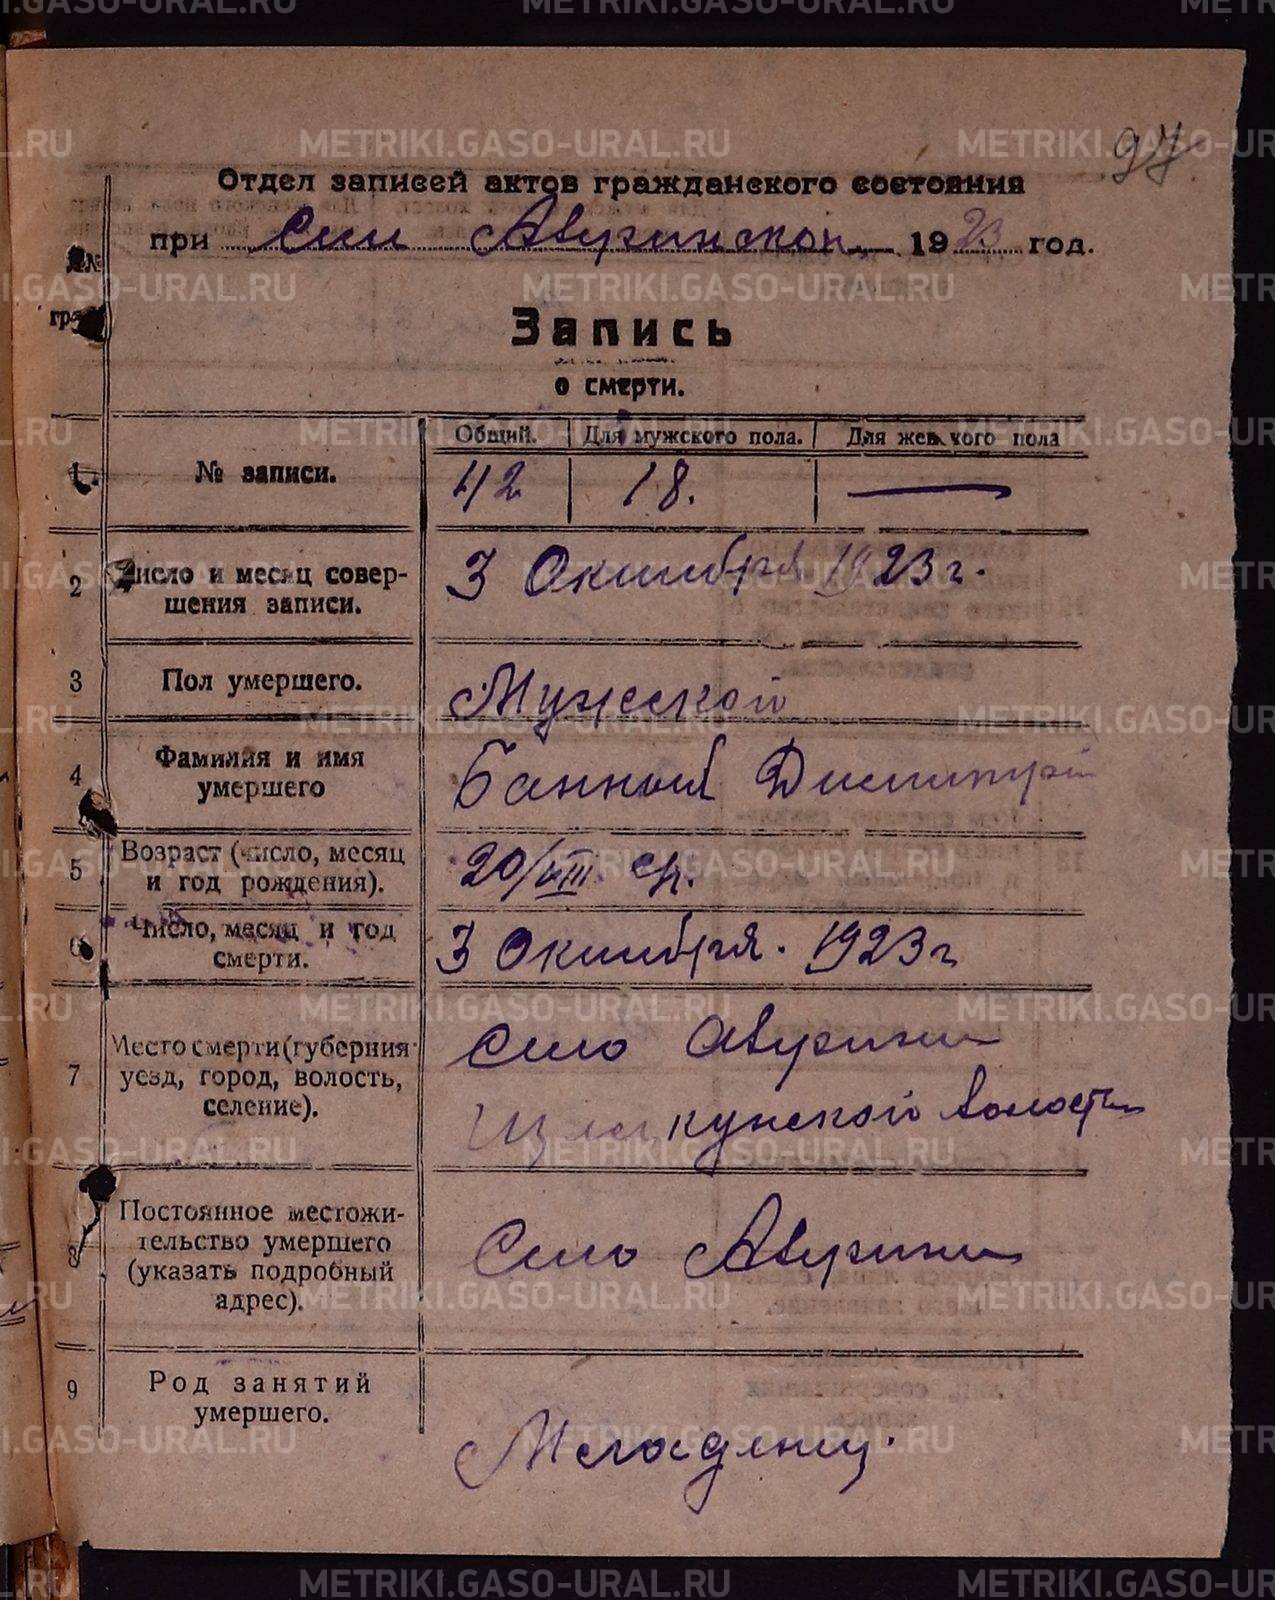 97
Отдел записей актов гражданского состояния
при Селе Авзянском 1923 год.
№№
гра
Запись
о смерти.
Общий. Для мужского пола. Для женского пола
1 № записи. 42 18. —
2 Число и месяц совер-
шения записи. 3 Октября 1923 г.
3 Пол умершего. Мужеской
4 Фамилия и имя
умершего Банных Димитрий
5 Возраст (число, месяц
и год рождения). 20/VIII с/г.
6 Число, месяц и год
смерти. 3 Октября. 1923 г
7 Место смерти (губерния
уезд, город, волость,
селение). Село
кунской волости
8 Постоянное местожи-
тельство умершего
(указать подробный
адрес). Село
9 Род занятий
умершего. Младенец.
METRIKI.GASO-URAL.RU